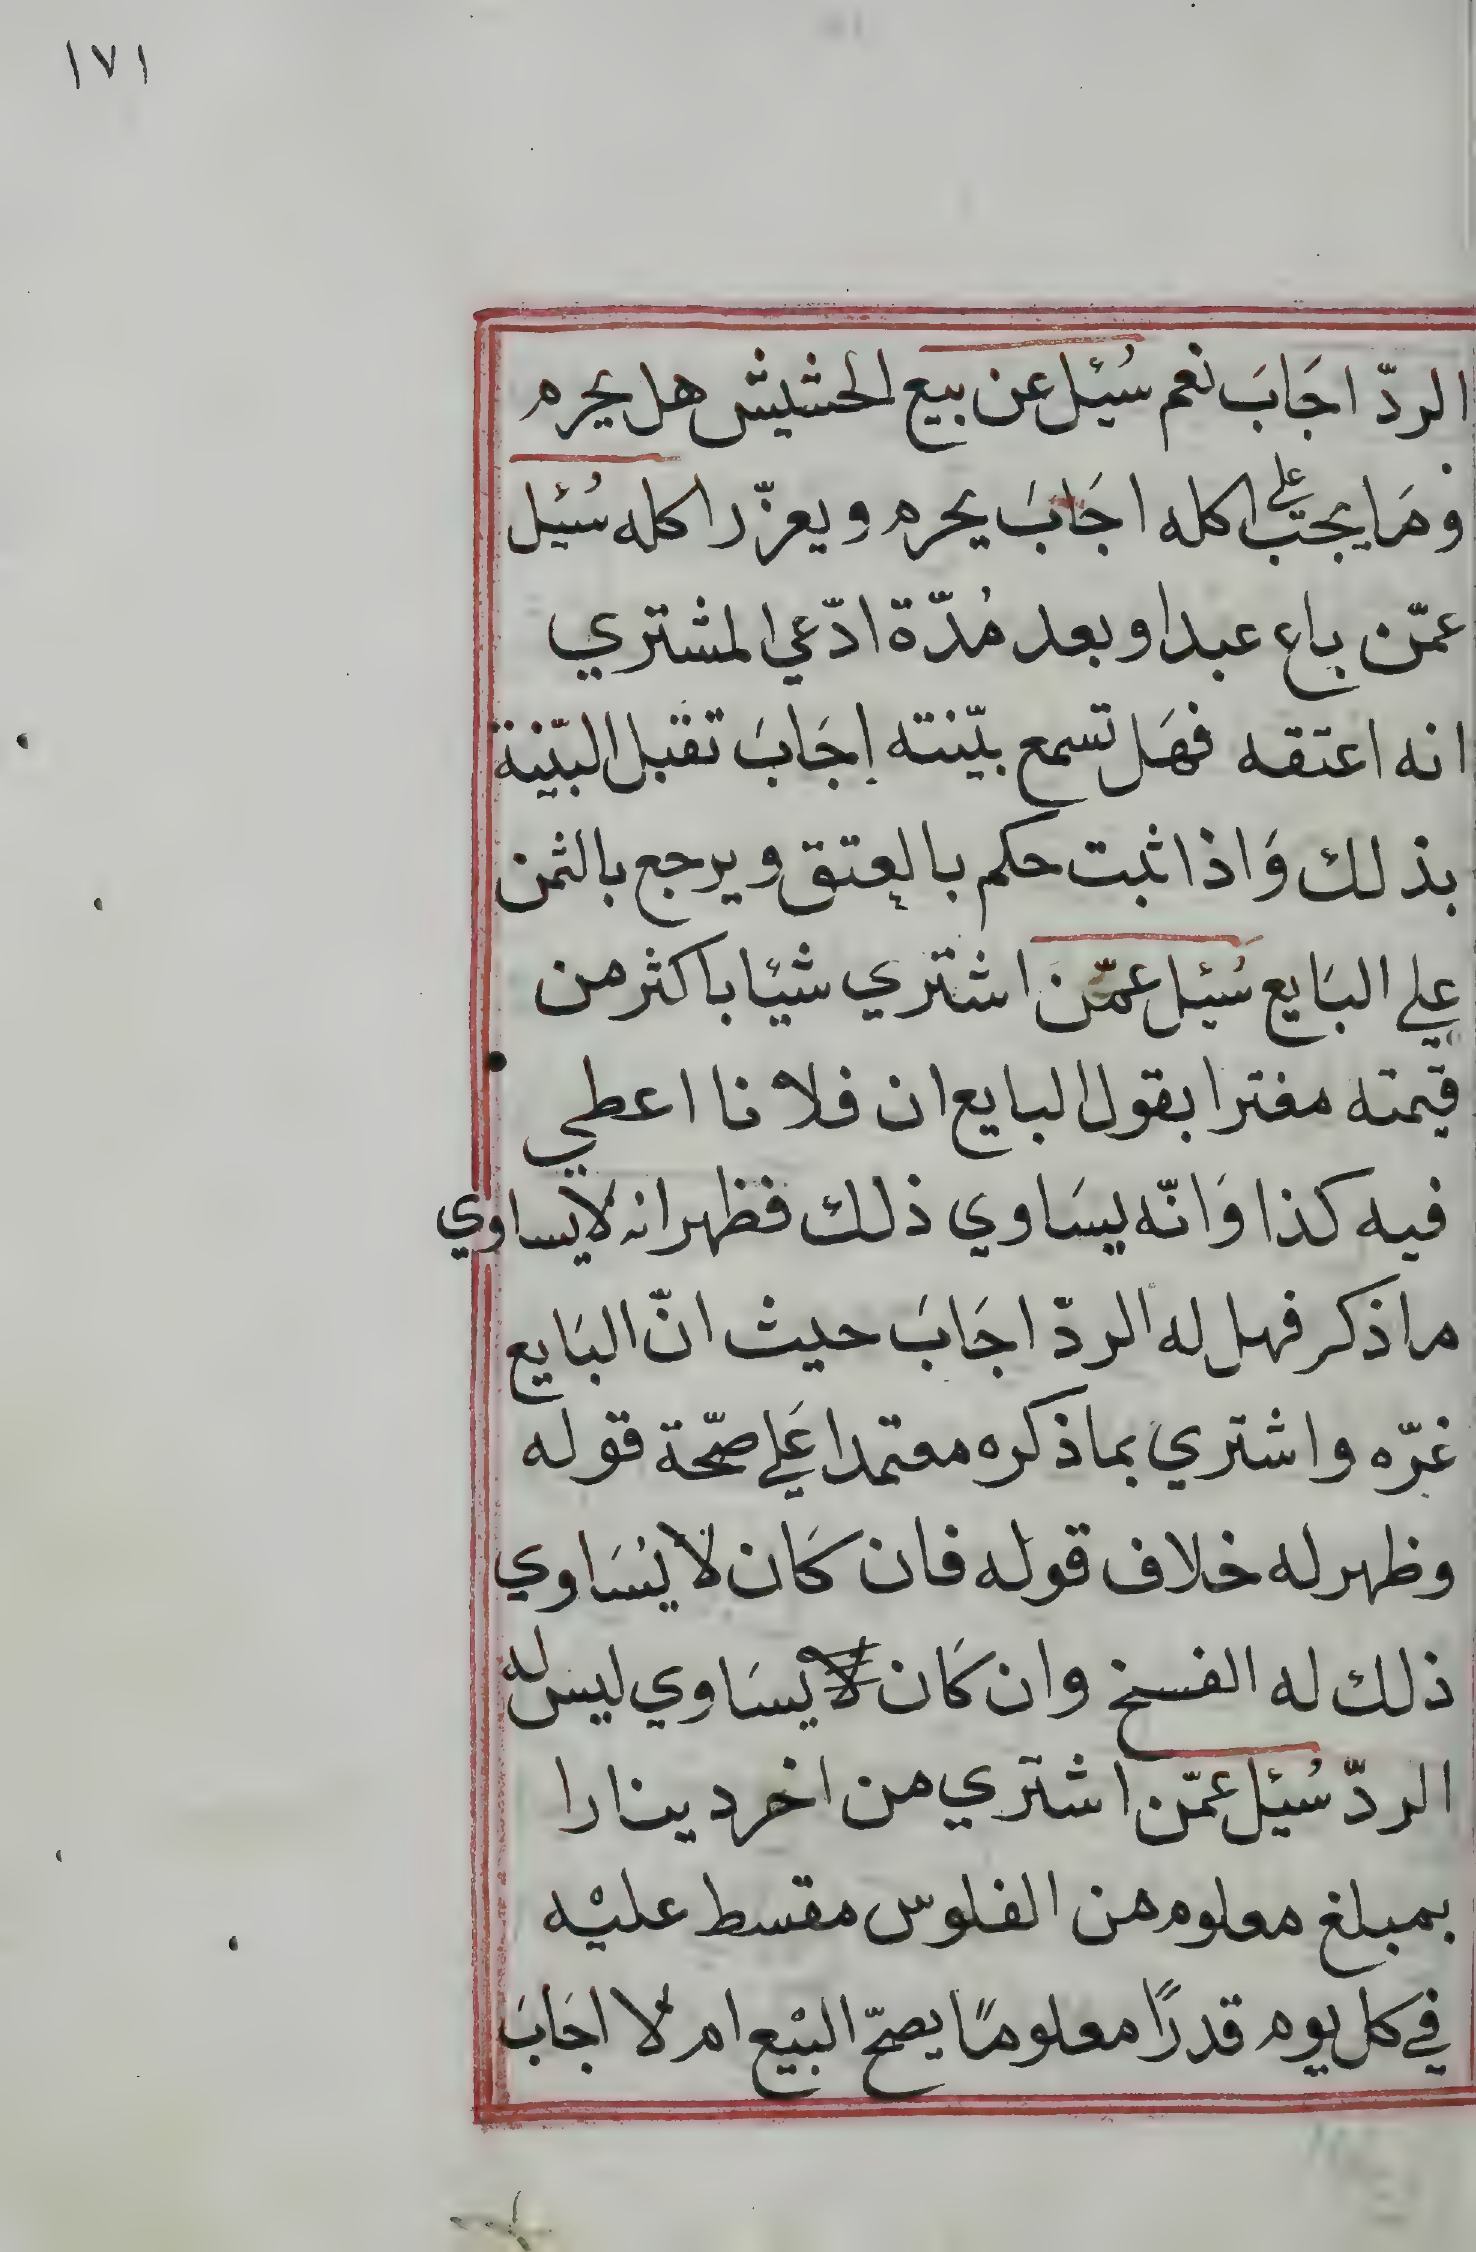 ١٧١
الردّ اجَابَ نعم سُئِل عن بيع الحشيش هل يحرم
وَمَا يجب علي اكله اجَابَ يحرم ويعزّر اكله سُئِل
عمّن باع عبدا وبعد مُدّة ادّعي المشتري
انه اعتقه فهَل تسمع بيّنته إجَابَ تقبل البيّنة
بذلك وَاذا ثبت حكم بالعتق ويرجع بالثمن
علي البَايع سُئِل عمّن اشتري شيئا باكثر من
قيمته مغترا بقول البايع ان فلانا اعطي
فيه كذا وَانّه يسَاوي ذلك فظهر انه لا يساوي
ما ذكر فهل له الردّ اجَابَ حيث انّ البَايع
غرّه واشتري بما ذكره معتمدا عَلي صحّة قوله
وظهر له خلاف قوله فان كَان لا يُسَاوي
ذلك له الفسخ وان كَان لا يسَاوي ليس له
الردّ سُئِل عمّن اشتري من اخر دينارا
بمبلغ معلوم من الفلوس مقسط عليْه
في كل يوم قدرًا معلومًا يصحّ البيْع ام لا اجَابَ